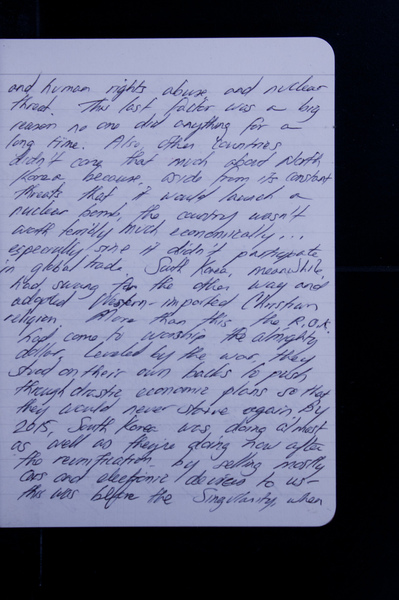 and human rights abuse and nuclear
threat. This last factor was a big
reason no one did anything for a
long time. Also, other countries
didn't care that much about North
Korea because, aside from its constant
threats that it would launch a
nuclear bomb, the country wasn't
worth terribly much economically...
especially since it didn't participate
in global trade. South Korea, meanwhile,
had swung far the other way and
adopted Western-imported Christian
religion. More than this the R.O.K.
had come to worship the almighty
dollar. Leveled by the war, they
stood on their own backs to push
through drastic economic plans so that
they would never starve again. By
2015, South Korea was doing almost
as well as they're doing now after
the reunification by selling mostly
cars and electronic devices to us—
this was before the Singularity, when